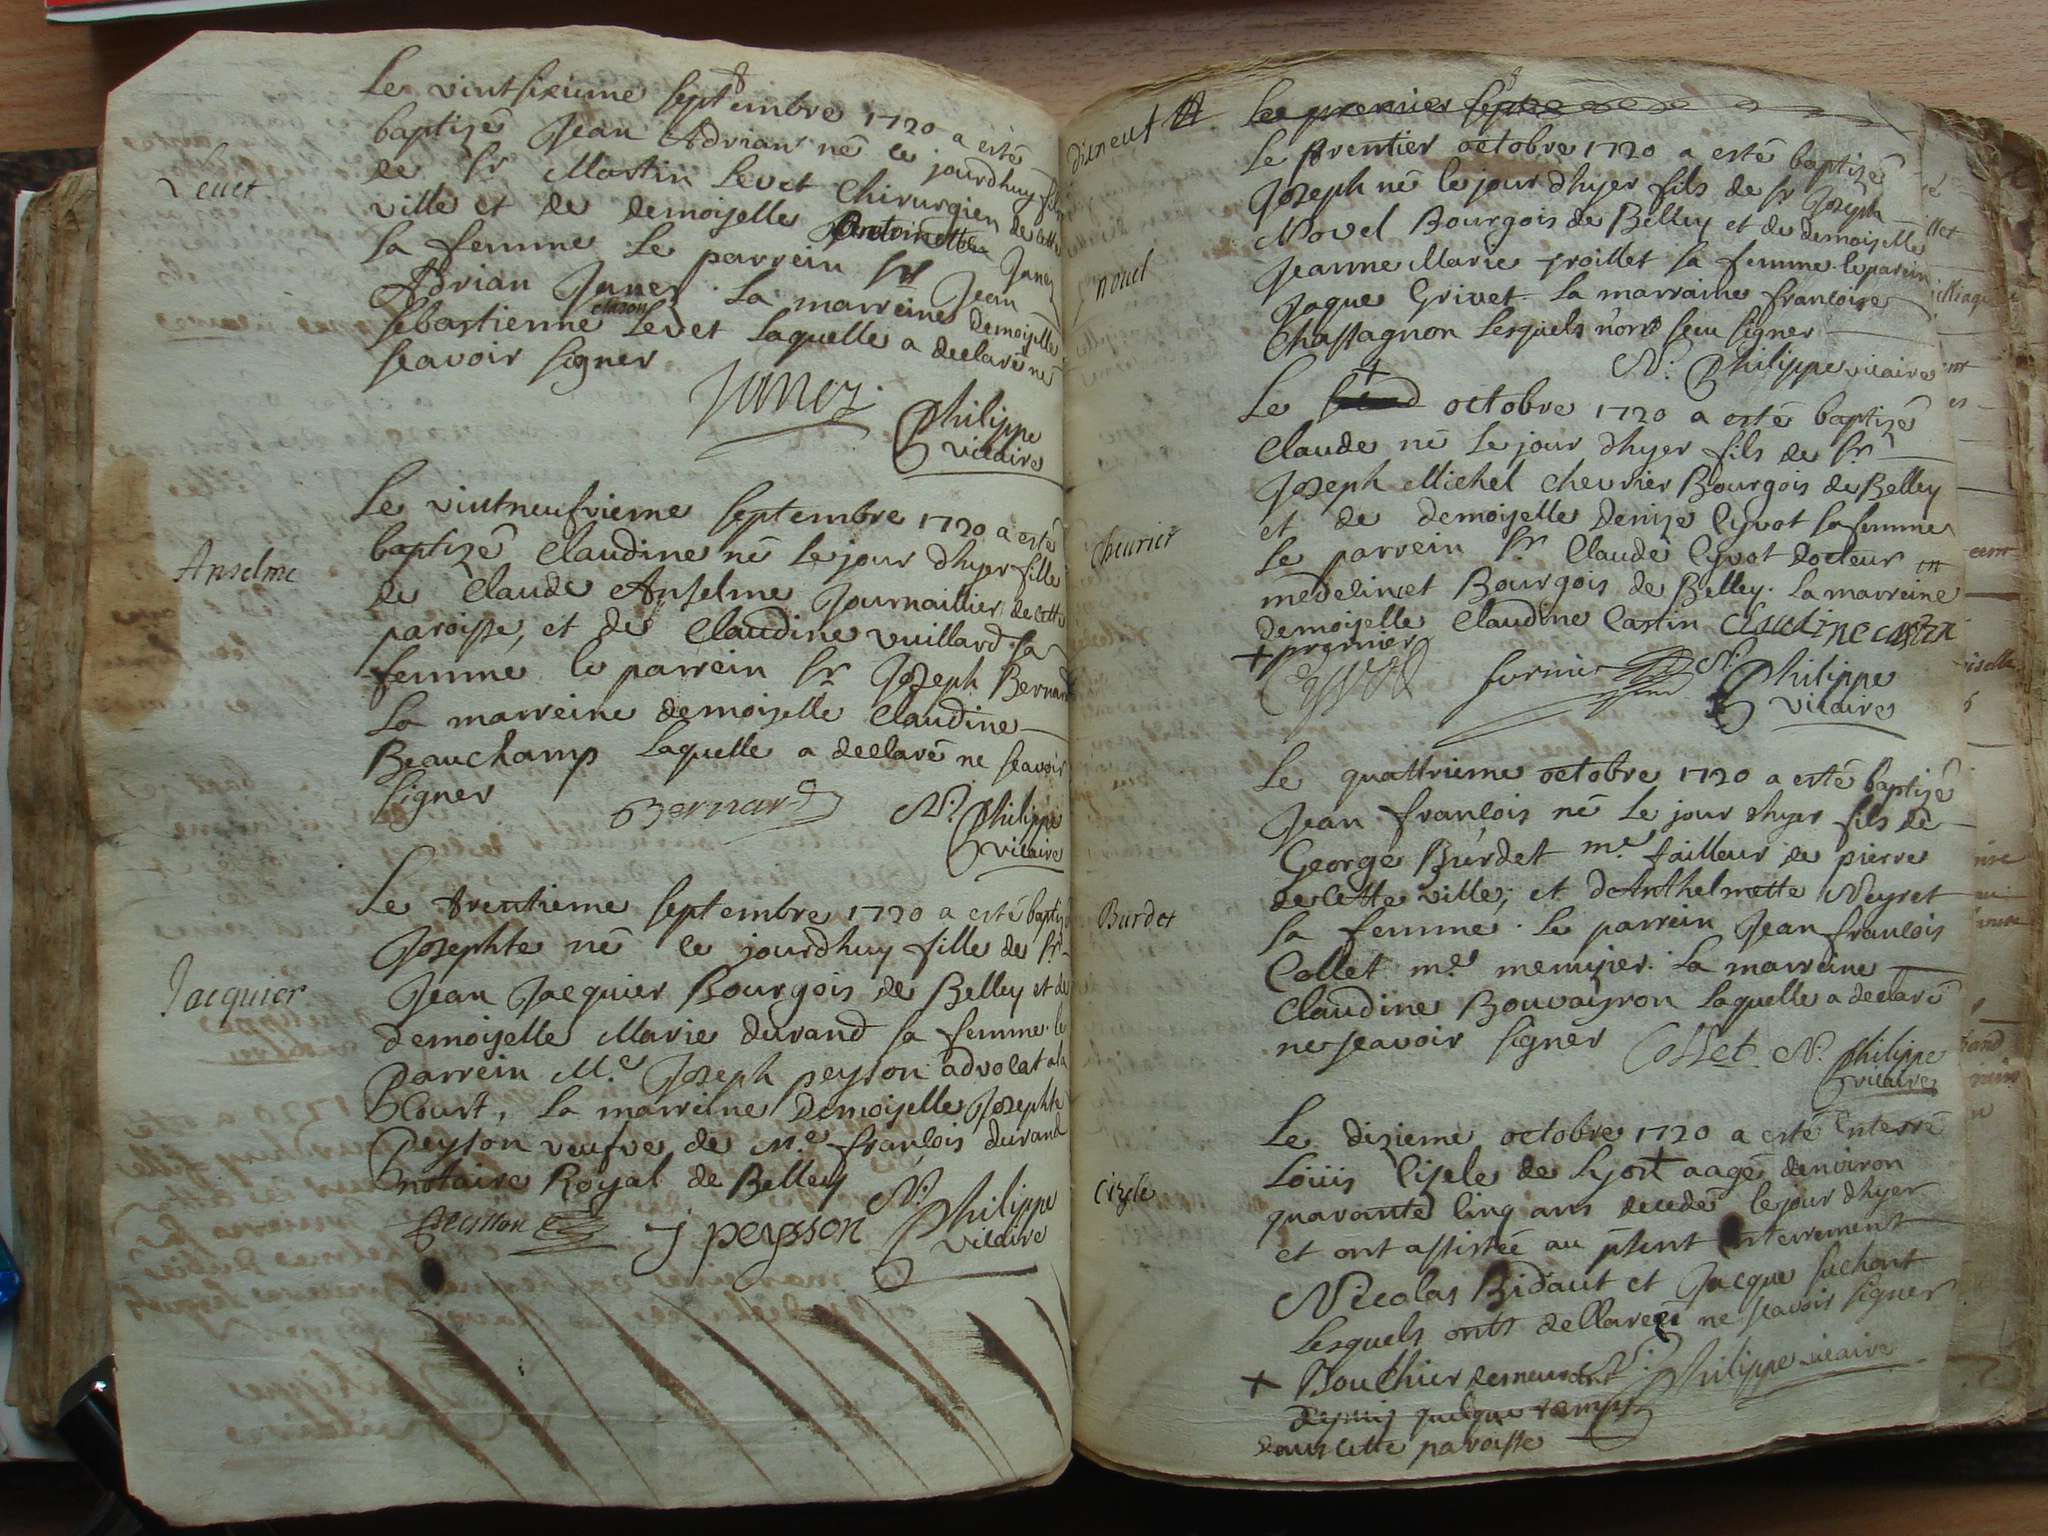 Le vintsixieme septembre 1720 a esté
baptizé Jean Adrian né ce jourdhuy fils
Levet
de sr Martin Levet Chirurgien de cette
ville et de demoiselle Antoinette Janez
sa femme. Le parrein sr Jean
Adrian Janez. La marreine Demoiselle
Sebastienne Levet laquelle a declaré ne
scavoir signer
Janez.
Philippe
vicaire
Le vintneufvieme septembre 1720 a esté
baptizé Claudine né le jour dhyer fille
Anselme
de Claude Anselme Journaillier de cette
paroisse, et de Claudine vuillard sa
femme le parrein sr Joseph Bernard
La marreine demoiselle Claudine
Beauchamp laquelle a declaré ne scavoir
signer
Bernard N. Philippe
vicaire
Le trentieme septembre 1720 a esté baptizé
Josephte né ce jourdhuy fille de sr
Jacquier
Jean Jacquier Bourgois de Belley et de
demoiselle Marie durand sa femme. le
parrein Me Joseph peyson advocat a la
Court, La marreine Demoiselle Josephte
Peyson veufve de Me françois durand
notaire Royal de Belley
peysson j peysson N. Philippe
vicaire
dixneuf Le premier septe
Le premier octobre 1720 a esté baptizé
Joseph né le jour dhyer fils de sr Joseph
Novel Bourgois de Belley et de demoiselle
novel
Jeanne Marie trollet sa femme. le parein
Jaque Grivet. La marraine francoise
Chassagnon Lesquels n'ont sceu signer
N. Philippe vicaire
Le + octobre 1720 a esté baptizé
Claude né le jour dhyer fils de sr
Joseph Michel chevrier Bourgois de Belley
et de demoiselle Denize Cyvot sa femme
Chevrier
Le parrein sr Claude Cyvot docteur en
medecin et Bourgois de Belley. La marreine
demoiselle Claudine Castin Claudine castin
+ premier
Cyvot N. Philippe
vicaire
Le quattrieme octobre 1720 a esté baptizé
Jean françois né le jour dhyer fils de
George Burdet me. tailleur de pierre
de cette ville, et d'Anthelmette Neyret
Burdet
sa femme. Le parrein Jean francois
Collet me. menuisier. La marreine
Claudine Bouvayron laquelle a declaré
ne scavoir signer Collet N. Philippe
vicaire
Le dizieme octobre 1720 a esté enterré
Loüis Cizele de Lyon + aagé denviron
Cizele
quarante cinq ans decedé le jour dhyer
et ont assistée au psent enterrement
Nicolas Bidaut et Jacque suchont
Lesquels onts declareé ne scavoir signer
+ Bouchier demeurant N. Philippe vicaire
depuis quelque temps
dans cette paroisse